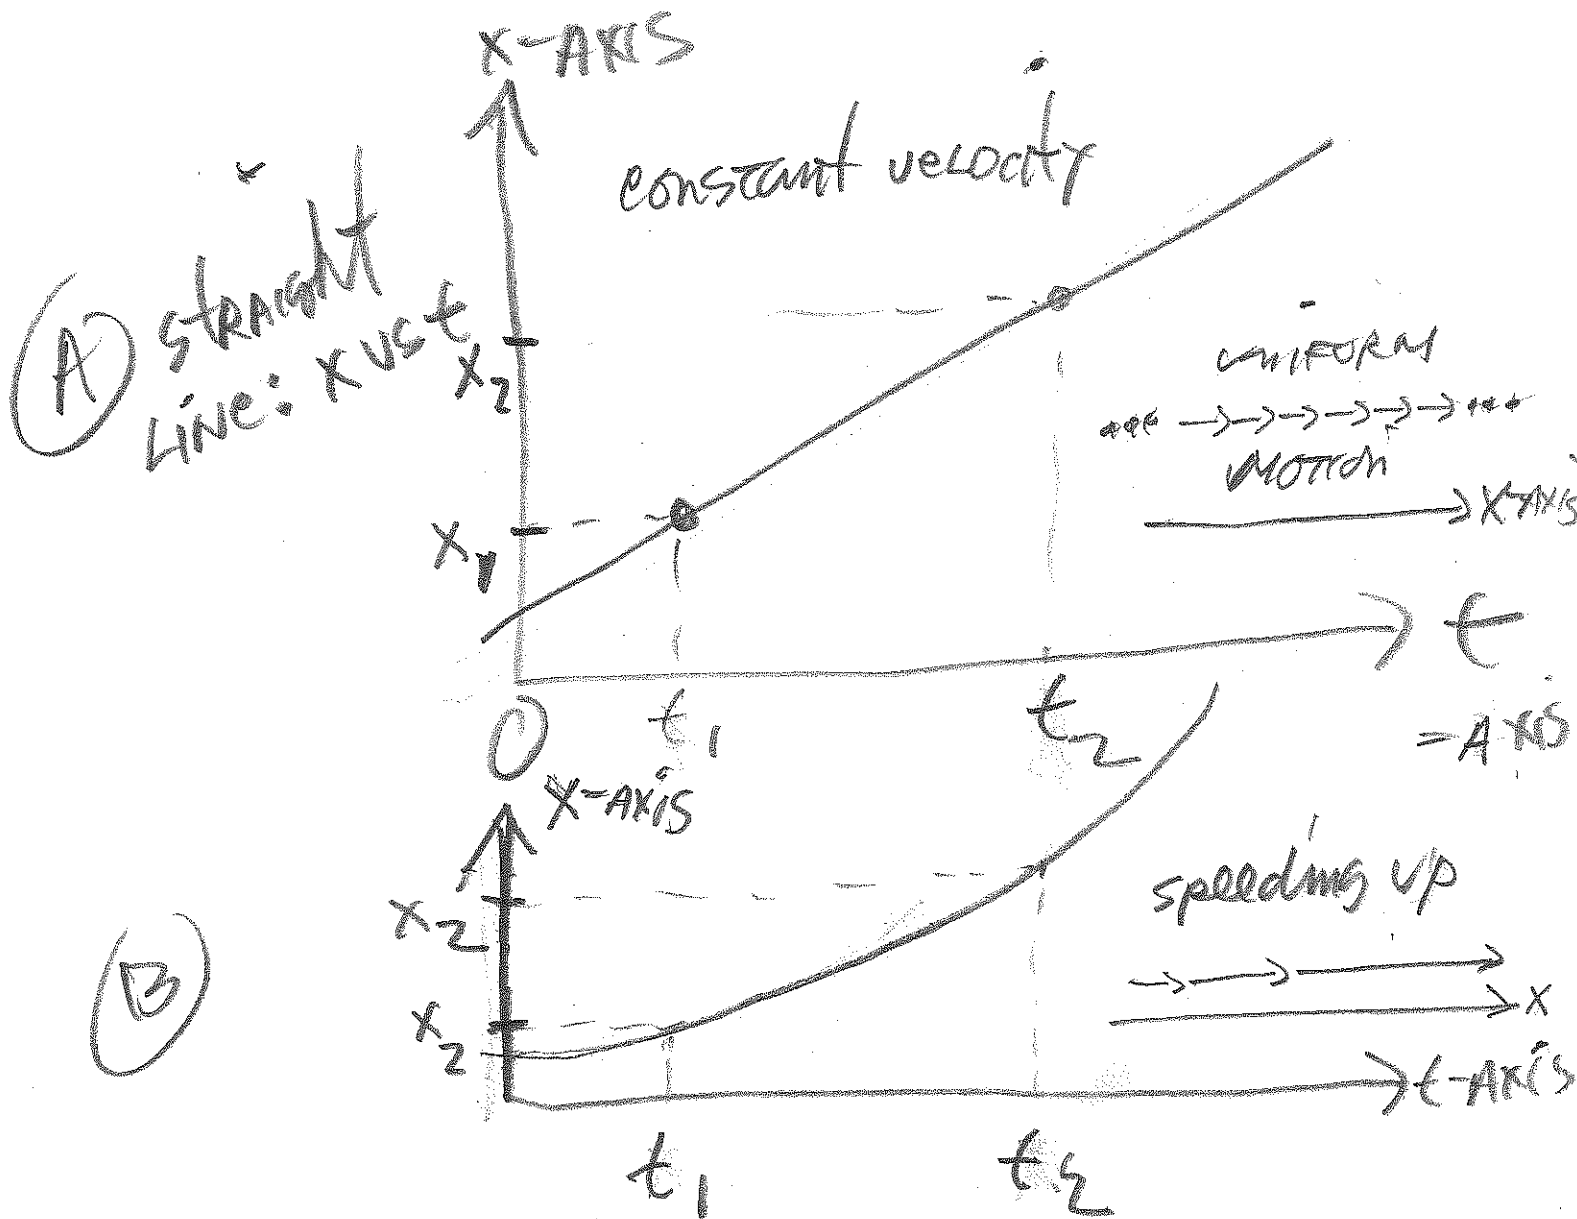 X-AXIS
constant velocity
A
straight
Line: x vs t
x2
uniform
motion
X-AXIS
x1
t
-AXIS
0
t1
t2
X-AXIS
B
speeding up
x2
x
x2
t-AXIS
t1
t2